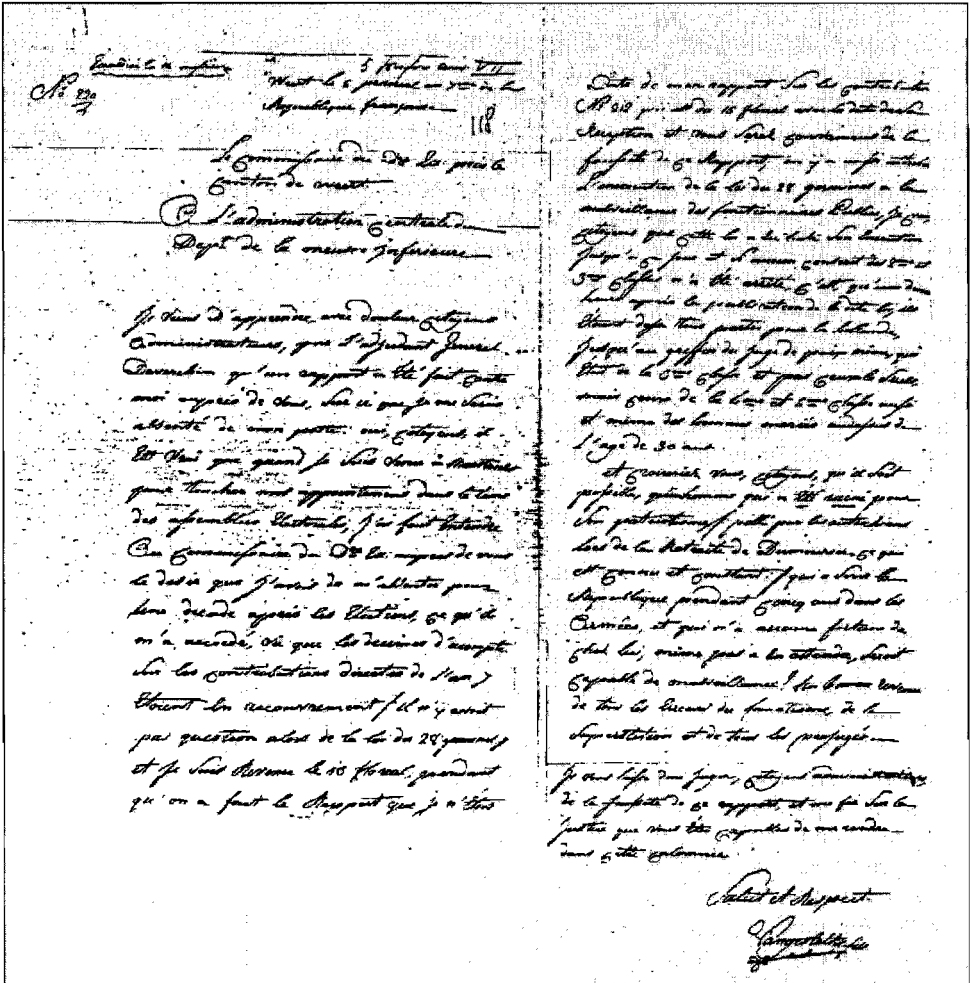 No 890
5 prairial an VII
Weert le 5 prairial an 7me de la
Republique française
118
Le Commissaire du Dre Ex. près le
Canton de weert
A L'administration Centrale du
Dept de la meuse inferieure
Je viens d'apprendre avec douleur Citoyens
Administrateurs, que L'adjudant General
qu'un rapport a Eté fait contre
moi auprès de vous, Sur ce que je me Serais
absenté de mon poste. oui, Citoyens, il
Est vrai que quand je Suis venu à Mastricht
pour toucher mes appointemens dans le tems
des assemblées Electorales, J'ai fait Entendre
Au Commissaire du Dre Ex. auprès de vous
le desir que J'avois de m'absenter pour
Une decade après les Elections, Ce qu'il
m'a accordé, vû que les decimes d'acompte
Sur les Contributions directes de l'an 7
Etoient En recouvrement / il n'y avoit
pas question alors de la loi du 28 germinal /
et je Suis Revenu le 18 floreal, pendant
qu'on a fait le Rapport que je n'étois
Date de mon rapport Sur les Contributions
No 818 qui est du 18 floreal avec la date de Sa
Reception et vous Serez Convaincus de la
fausseté de Ce Rapport, on y a aussi attribué
L'inexecution de la loi du 28 germinal à la
malveillance des fonctionnaires Publics, Je
Citoyens que Cette loi a Eté Sans Execution
Jusqu'à Ce jour et Si aucun Conscrit des 2me et
3me Classes n'a Eté arrêté, C'est qu'une
heure après la publication de la dite loi, ils
Etoient deja tous partis pour la hollande,
Jusqu'au greffier du juge de paix, même, qui
Etait de la 5me Classe et pas Ceux la Seuls,
mais Ceux de la 4me et 5me Classe aussi
et même des hommes mariés audessus de
L'age de 30 ans
et Croiriez vous, Citoyens, qu'il Soit
possible, qu'un homme qui a Eté ruiné pour
Son patriotisme / pillé par les autrichiens
lors de la Retraite de Dumourier, Ce qui
Est Connu et Constant / qui a Servi la
Republique pendant Cinq ans dans les
Armées, et qui n'a aucune fortune de
Chez lui, même pas a En attendre, Soit
Capable de malveillance! Un homme revenu
de tous les Erreurs du fanatisme, de la
Superstition et de tous les prejugés
Je vous laisse donc juger, Citoyens administrateurs,
de la fausseté de Ce rapport, et me fie Sur la
justice que vous Etes Capables de me rendre
dans Cette Calomnie.
Salut et Respect